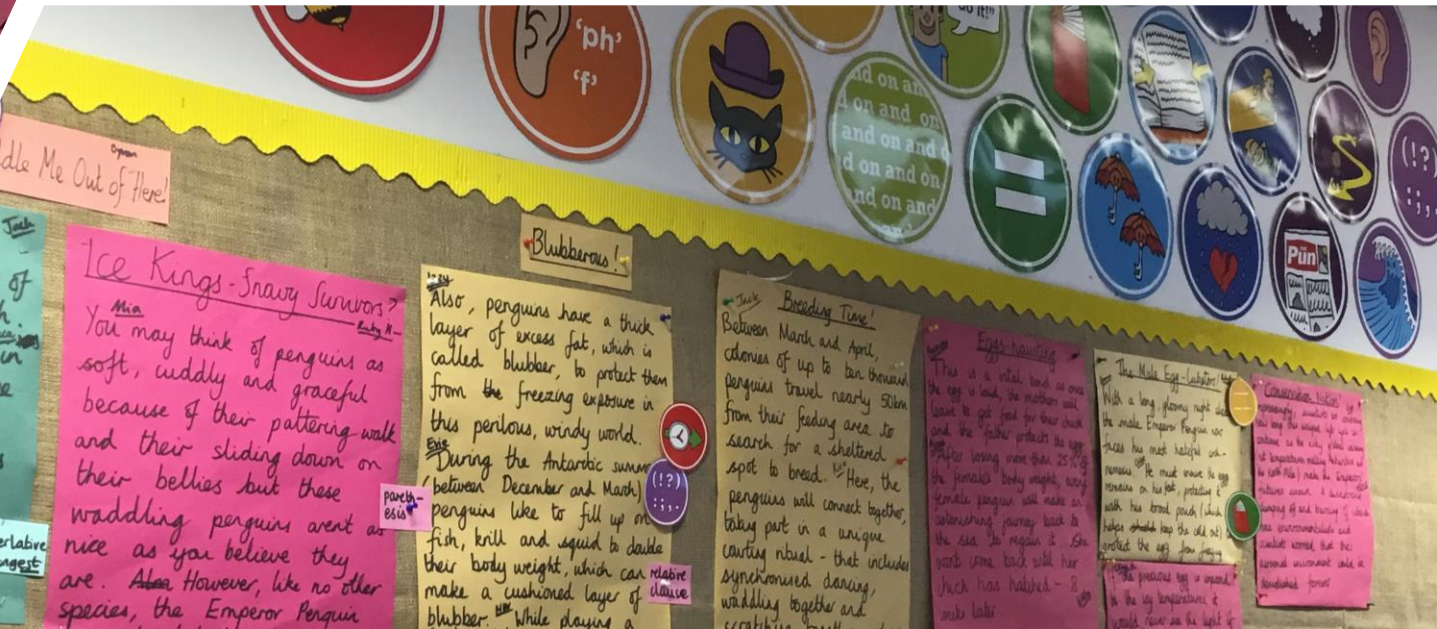 'ph'
'f'
do it!"
and on an
on and on
and on and
d on and on
and on and
Pun
(!?)
:;,.
ddle Me Out of Here!
Jack
of
in
erlative
ngest
Ice Kings - Snavy Survivors?
Mia
Ruby H-
You may think of penguins as
soft, cuddly and graceful
because of their pattering walk
and their sliding down on
their bellies but these
waddling penguins arent as
nice as you believe they
are. However, like no other
species, the Emperor Penguin
pareth-
esis
Blubberous!
Izzy
Also, penguins have a thick
layer of excess fat, which is
called blubber, to protect them
from the freezing exposure in
this perilous, windy world.
Evie
During the Antarctic summ
(between December and March)
penguins like to fill up on
fish, krill and squid to double
their body weight, which can
make a cushioned layer of
blubber. While playing a
(!?)
:;,.
relative
clause
Jack
Breeding Time!
Between March and April,
colonies of up to ten thousand
penguins travel nearly 50km
from their feeding area to
search for a sheltered
spot to breed. Here, the
penguins will connect together,
taking part in a unique
courting ritual - that includes
synchronised dancing,
waddling together and
scratching together
Eggs-hausting
This is a vital bond as once
the egg is laid, the mothers will
leave to get food for their chick
and the father protects the egg.
After losing more than 25% of
the female's body weight, every
female penguin will make an
astonishing journey back to
the sea to regain it. She
wont come back until her
chick has hatched - 8
weeks later.
The Male Egg-
With a long, gloomy night
the male Emperor Penguin
faces his most hateful
nemesis. He must ensure the egg
remains on his feet, protecting it
with his brood pouch (which
helps keep the cold out) to
protect the egg from
If the precious egg is exposed
to the icy temperatures, it
would never see the light of
Conservation